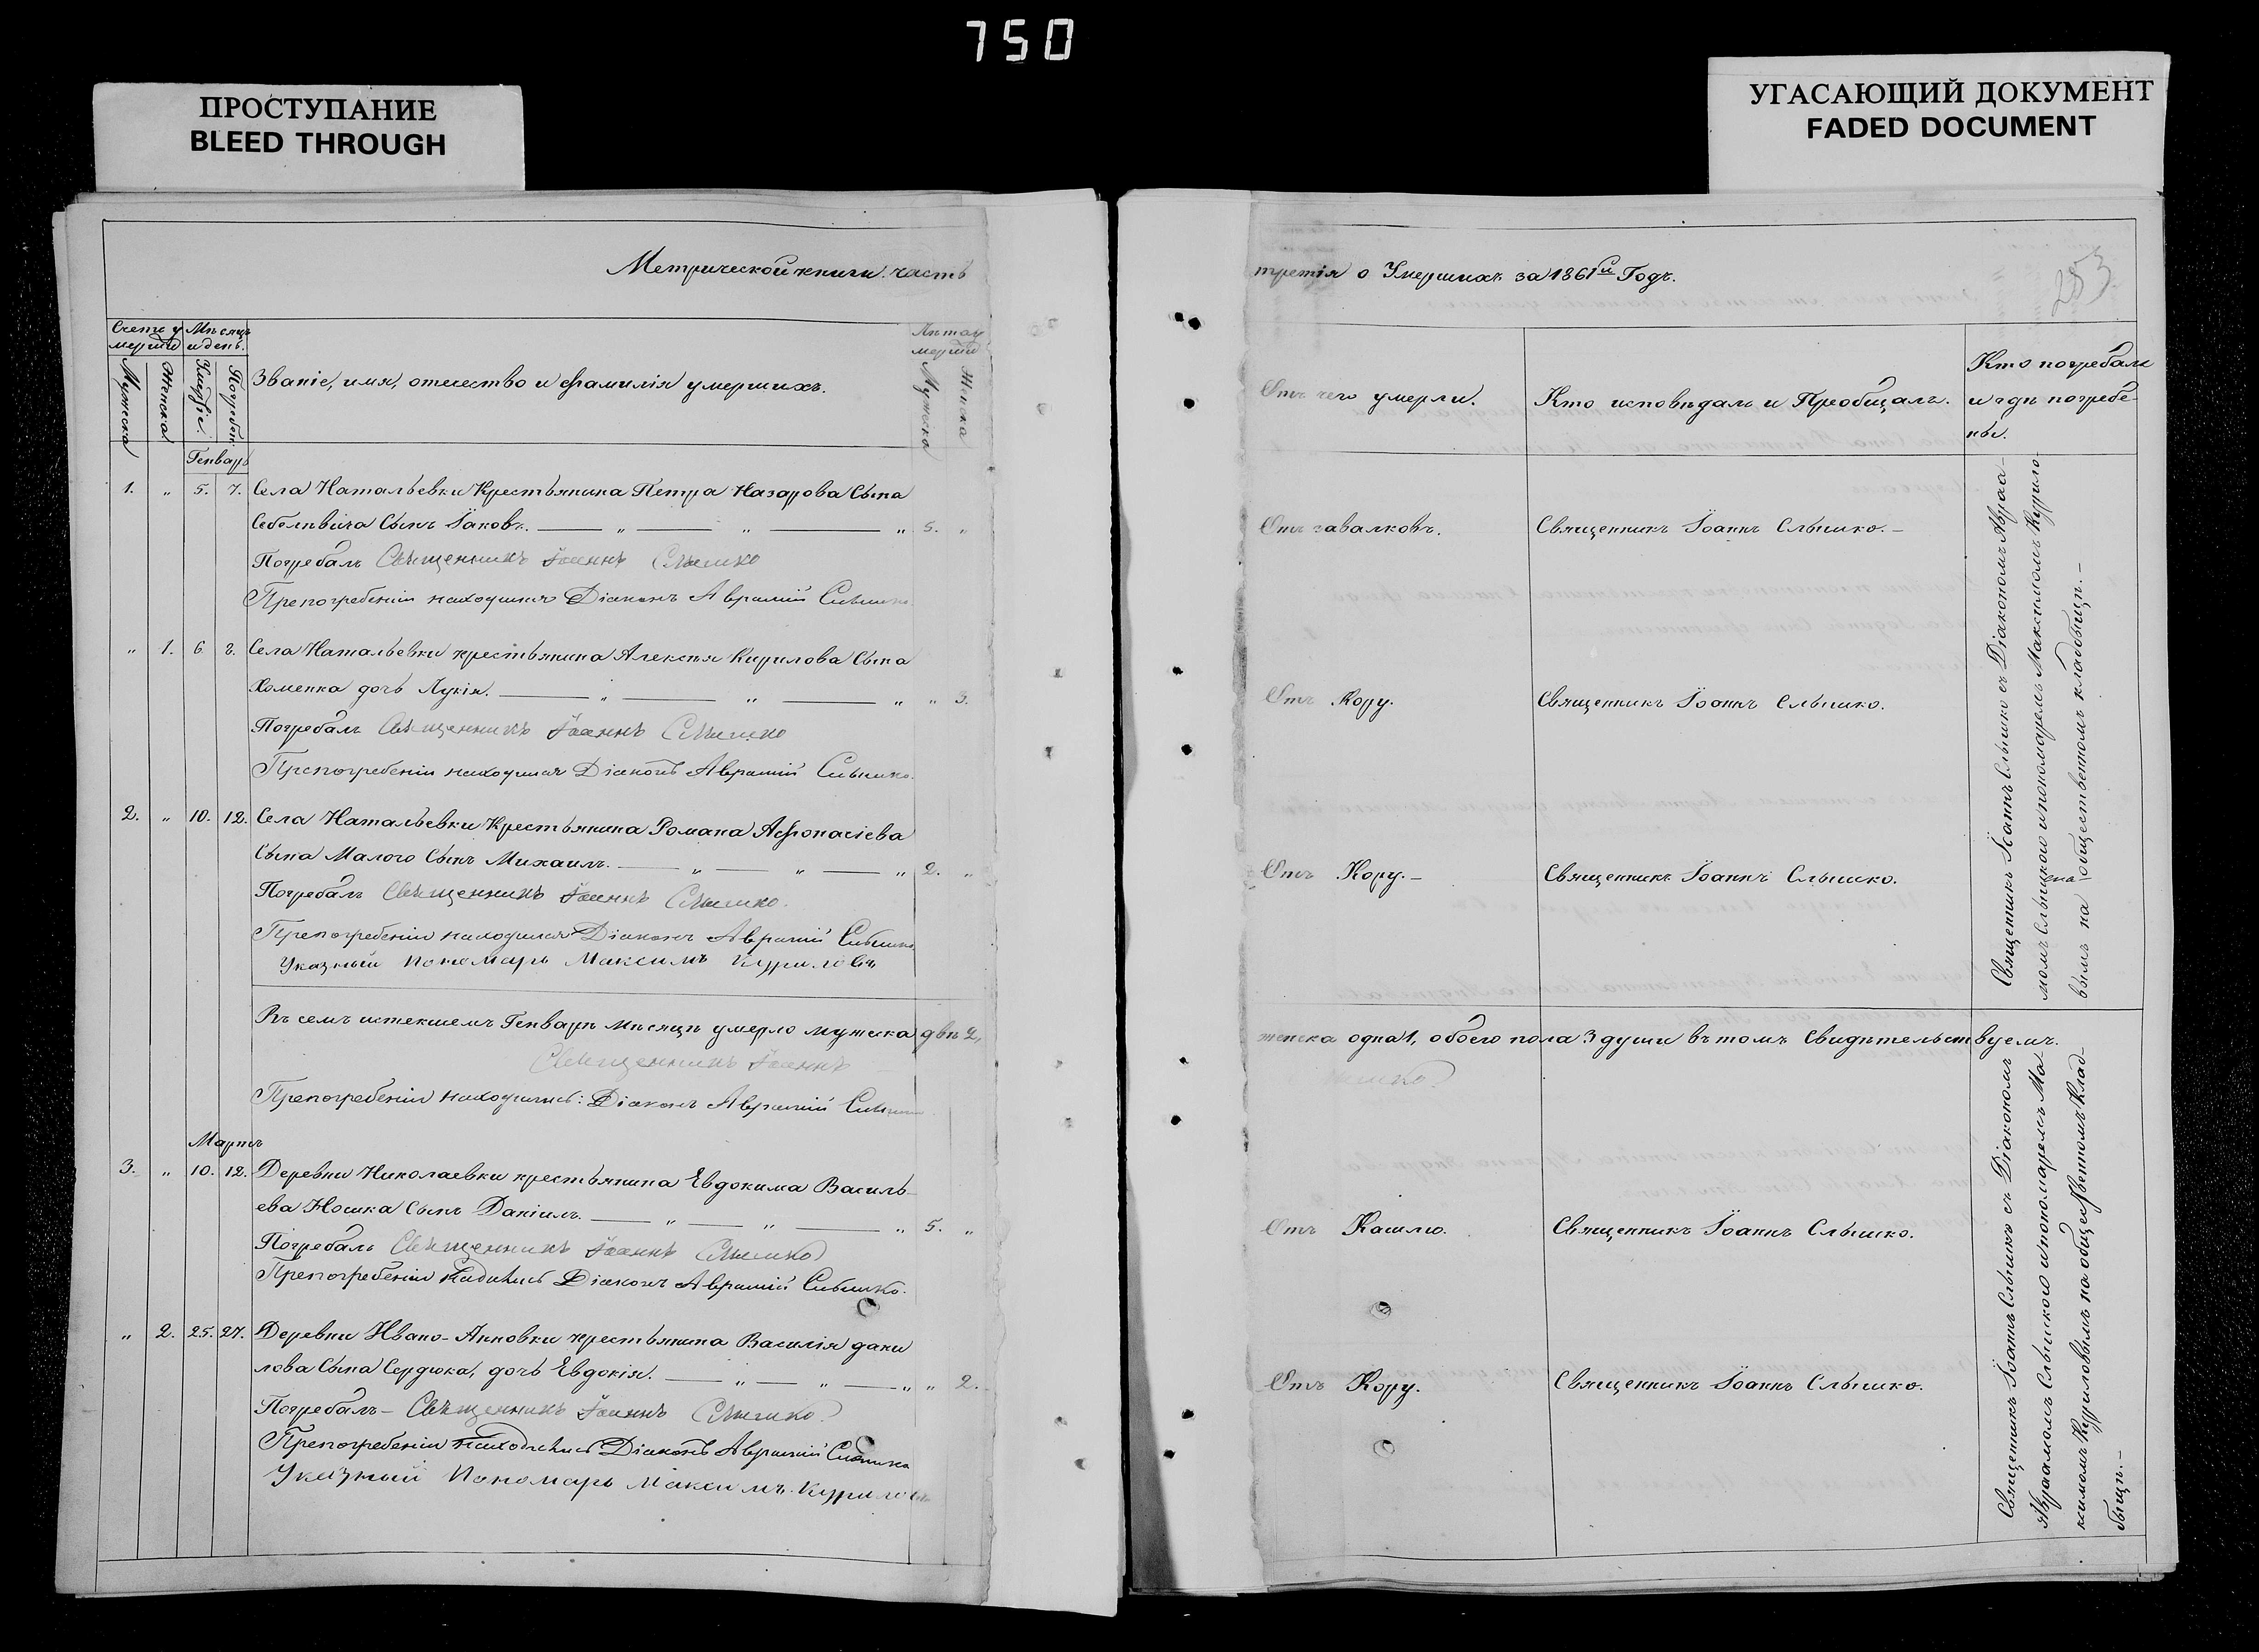 750
ПРОСТУПАНИЕ
BLEED THROUGH
УГАСАЮЩИЙ ДОКУМЕНТ
FADED DOCUMENT
Метрической книги часть
третія о Умершихъ за 1861й Годъ.
253
Счетъ у
мерши
Мѣсяцъ
и день.
Мужска
Женска
Званіе, имя, отчество и фамилія умершихъ.
Лѣта у
мерши
Мужска
Женска
Отъ чего умерли.
Кто исповѣдалъ и Пріобщалъ.
Кто погребалъ
и гдѣ погребе-
ны.
Генварь
1. " 5. 7. Села Натальевки Крестьянина Петра Назарова Сына
Сынъ Іаковъ. " " " 5. "
Отъ завалковъ.
Священникъ Іоаннъ Слышко.-
Погребалъ Священникъ Іоаннъ Слышко
Препогребеніи находился Діаконъ Аврамій Слышко
" 1. 6. 8. Села Натальевки крестьянина Алексѣя Кирилова Сына
Хоменка дочь Лукія. " " " " 3.
Отъ Кору.
Священникъ Іоаннъ Слышко.
Погребалъ Священникъ Іоаннъ Слышко
Препогребеніи находился Діаконъ Аврамій Слышко.
2. " 10. 12. Села Натальевки Крестьянина Романа Афонасіева
Сына Малого Сынъ Михаилъ. " " " 2. "
Отъ Кору.-
Священникъ Іоаннъ Слышко.
Погребалъ Священникъ Іоаннъ Слышко.
Препогребеніи находился Діаконъ Аврамій Слышко
Указный Пономарь Максимъ Куриловъ
Священникъ Іоаннъ Слышко съ Діакономъ Авраа-
момъ Слышкою и пономаремъ Максимомъ Курило-
вымъ на общественномъ кладбищѣ.-
Въ семъ истекшемъ Генварѣ мѣсяцѣ умерло мужска двѣ 2,
женска одна 1, обоего пола 3 души въ томъ Свидѣтельствуемъ.
Священникъ Іоаннъ
Слышко.
Препогребеніи находились: Діаконъ Аврамій Слышко
Мартъ
3. " 10. 12. Деревни Николаевки крестьянина Евдокима Василь-
ева Ношка Сынъ Даніилъ. " " " 5. "
Отъ Кашлю.
Священникъ Іоаннъ Слышко.
Погребалъ Священникъ Іоаннъ Слышко
Препогребеніи Діаконъ Аврамій Слышко.
" 2. 25. 27. Деревни Ивано-Анновки крестьянина Василія дани
лова Сына Сердюка, дочь Евдокія. " " " " 2.
Отъ Кору.
Священникъ Іоаннъ Слышко.
Погребалъ- Священникъ Іоаннъ Слышко.
Препогребеніи находились Діаконъ Аврамій Слышко
Указный Пономарь Максимъ Куриловъ
Священникъ Іоаннъ Слышко съ Діакономъ
Авраамомъ Слышкою и пономаремъ Ма-
ксимомъ Куриловымъ на общественномъ Клад-
бищѣ.-